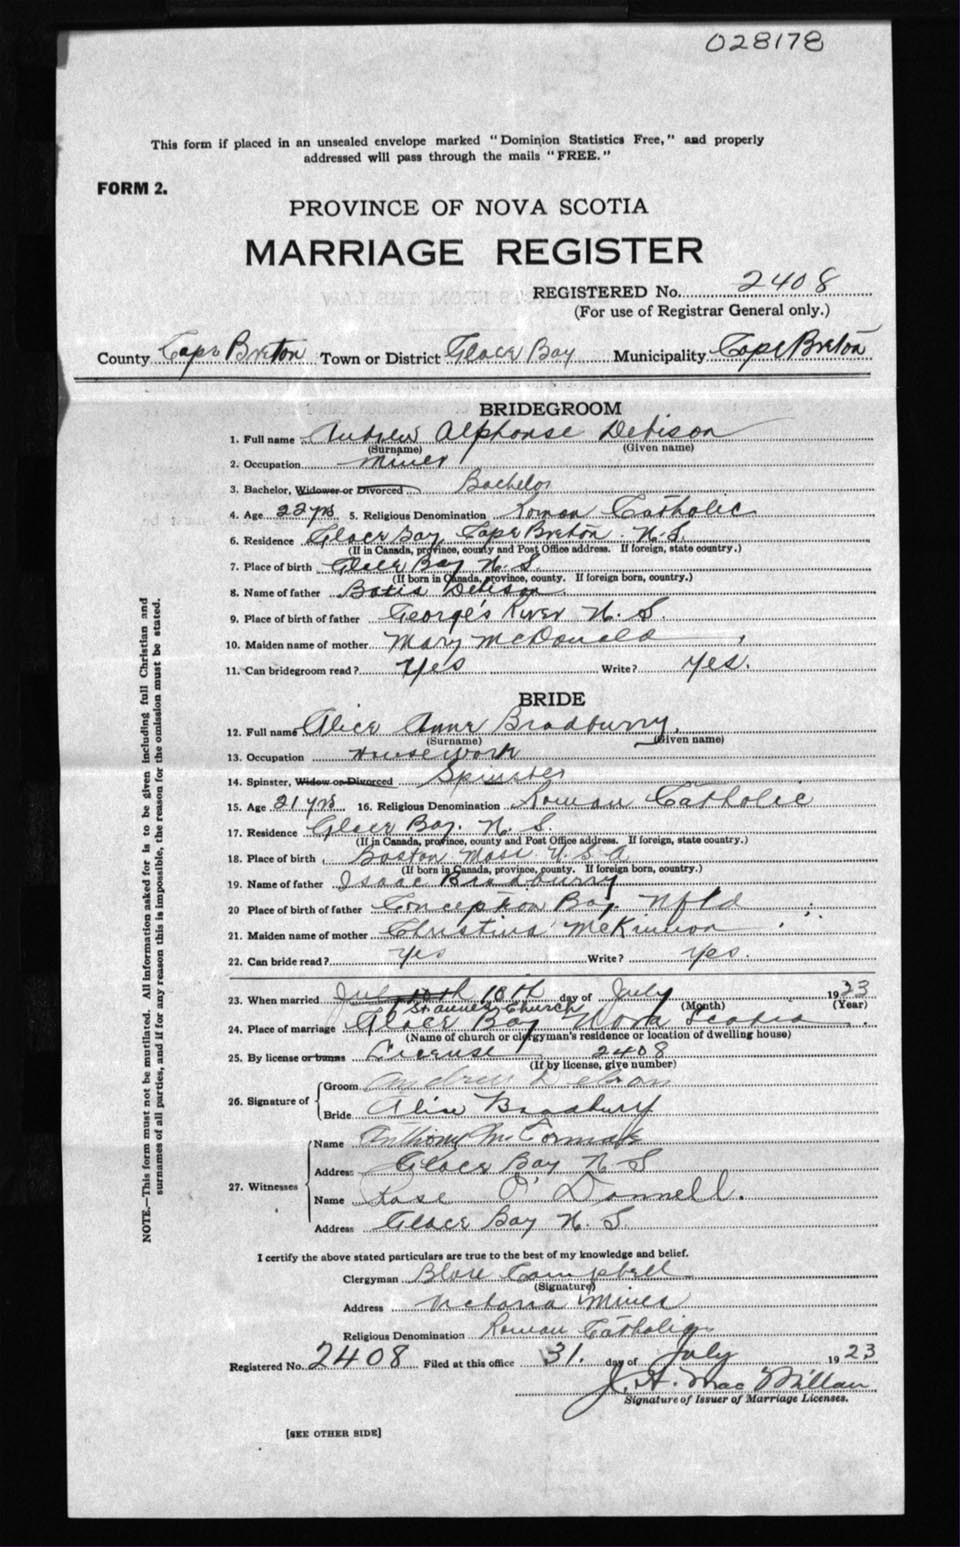 028178
This form if placed in an unsealed envelope marked "Dominion Statistics Free," and properly
addressed will pass through the mails "FREE."
FORM 2.
PROVINCE OF NOVA SCOTIA
MARRIAGE REGISTER
REGISTERED No. 2408
(For use of Registrar General only.)
County Cape Breton Town or District Glace Bay Municipality Cape Breton
BRIDEGROOM
1. Full name Andrew Alphonse Debison
(Surname) (Given name)
2. Occupation Miner
3. Bachelor, Widower or Divorced Bachelor
4. Age 22 yrs 5. Religious Denomination Roman Catholic
6. Residence Glace Bay, Cape Breton. N.S.
(If in Canada, province, county and Post Office address. If foreign, state country.)
7. Place of birth Glace Bay N.S.
(If born in Canada, province, county. If foreign born, country.)
8. Name of father Debison
9. Place of birth of father George's River N.S.
10. Maiden name of mother Mary McDonald
11. Can bridegroom read? Yes Write? Yes.
BRIDE
12. Full name Alice Anne Bradburry,
(Surname) (Given name)
13. Occupation Housework
14. Spinster, Widow or Divorced Spinster
15. Age 21 yrs 16. Religious Denomination Roman Catholic
17. Residence Glace Bay. N.S.
(If in Canada, province, county and Post Office address. If foreign, state country.)
18. Place of birth Boston Mass U.S.A
(If born in Canada, province, county. If foreign born, country.)
19. Name of father Isaac Bradburry
20 Place of birth of father Conception Bay Nfld
21. Maiden name of mother Christina McKinnon
22. Can bride read? Yes Write? Yes.
23. When married 10th day of July 1923
(Month) (Year)
St annes Church
24. Place of marriage Glace Bay Nova Scotia
(Name of church or clergyman's residence or location of dwelling house)
25. By license or banns License 2408
(If by license, give number)
26. Signature of
Groom Andrew Debison
Bride Alice Bradbury
27. Witnesses
Name Anthony McCormack
Address Glace Bay N S
Name Rose O'Donnell.
Address Glace Bay N. S.
I certify the above stated particulars are true to the best of my knowledge and belief.
Clergyman Campbell
(Signature)
Address Victoria Mines
Religious Denomination Roman Catholic
Registered No. 2408 Filed at this office 31. day of July 1923
J. A. MacMillan
Signature of Issuer of Marriage Licenses.
[SEE OTHER SIDE]
NOTE.—This form must not be mutilated. All information asked for is to be given including full Christian and
surnames of all parties, and if for any reason this is impossible, the reason for the omission must be stated.